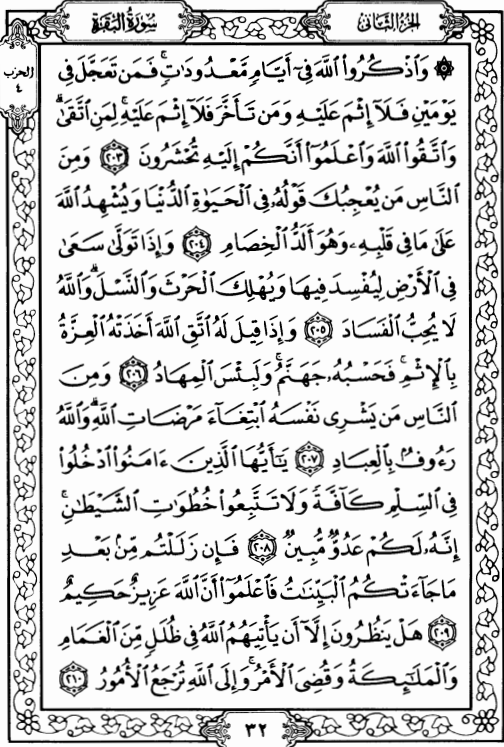 الجزء الثاني
سورة البقرة
الحزب
٤
۞ وَاذْكُرُوا اللَّهَ فِي أَيَّامٍ مَّعْدُودَاتٍ ۚ فَمَن تَعَجَّلَ فِي
يَوْمَيْنِ فَلَا إِثْمَ عَلَيْهِ وَمَن تَأَخَّرَ فَلَا إِثْمَ عَلَيْهِ ۚ لِمَنِ اتَّقَىٰ ۗ
وَاتَّقُوا اللَّهَ وَاعْلَمُوا أَنَّكُمْ إِلَيْهِ تُحْشَرُونَ ٢٠٣ وَمِنَ
النَّاسِ مَن يُعْجِبُكَ قَوْلُهُ فِي الْحَيَوٰةِ الدُّنْيَا وَيُشْهِدُ اللَّهَ
عَلَىٰ مَا فِي قَلْبِهِ وَهُوَ أَلَدُّ الْخِصَامِ ٢٠٤ وَإِذَا تَوَلَّىٰ سَعَىٰ
فِي الْأَرْضِ لِيُفْسِدَ فِيهَا وَيُهْلِكَ الْحَرْثَ وَالنَّسْلَ ۗ وَاللَّهُ
لَا يُحِبُّ الْفَسَادَ ٢٠٥ وَإِذَا قِيلَ لَهُ اتَّقِ اللَّهَ أَخَذَتْهُ الْعِزَّةُ
بِالْإِثْمِ ۚ فَحَسْبُهُ جَهَنَّمُ ۚ وَلَبِئْسَ الْمِهَادُ ٢٠٦ وَمِنَ
النَّاسِ مَن يَشْرِي نَفْسَهُ ابْتِغَاءَ مَرْضَاتِ اللَّهِ ۗ وَاللَّهُ
رَءُوفٌ بِالْعِبَادِ ٢٠٧ يَٰأَيُّهَا الَّذِينَ ءَامَنُوا ادْخُلُوا
فِي السِّلْمِ كَافَّةً وَلَا تَتَّبِعُوا خُطُوَٰتِ الشَّيْطَٰنِ ۚ
إِنَّهُ لَكُمْ عَدُوٌّ مُّبِينٌ ٢٠٨ فَإِن زَلَلْتُم مِّنۢ بَعْدِ
مَا جَاءَتْكُمُ الْبَيِّنَٰتُ فَاعْلَمُوا أَنَّ اللَّهَ عَزِيزٌ حَكِيمٌ
٢٠٩ هَلْ يَنظُرُونَ إِلَّا أَن يَأْتِيَهُمُ اللَّهُ فِي ظُلَلٍ مِّنَ الْغَمَامِ
وَالْمَلَٰئِكَةُ وَقُضِيَ الْأَمْرُ ۚ وَإِلَى اللَّهِ تُرْجَعُ الْأُمُورُ ٢١٠
٣٢